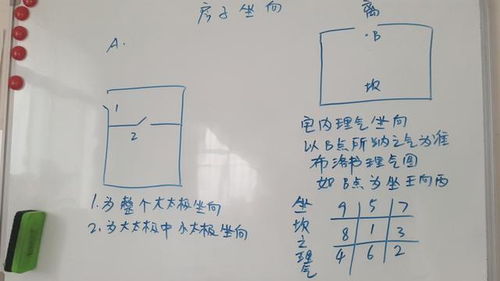 房子坐向
A.
1
2
1.为整个大太极坐向
2.为大太极中小太极坐向
离
·B
坎
宅内理气坐向
以B点所纳之气为准
布洛书理气图
如B点为坐壬向丙
坐坎之理气
9 5 7
8 1 3
4 6 2